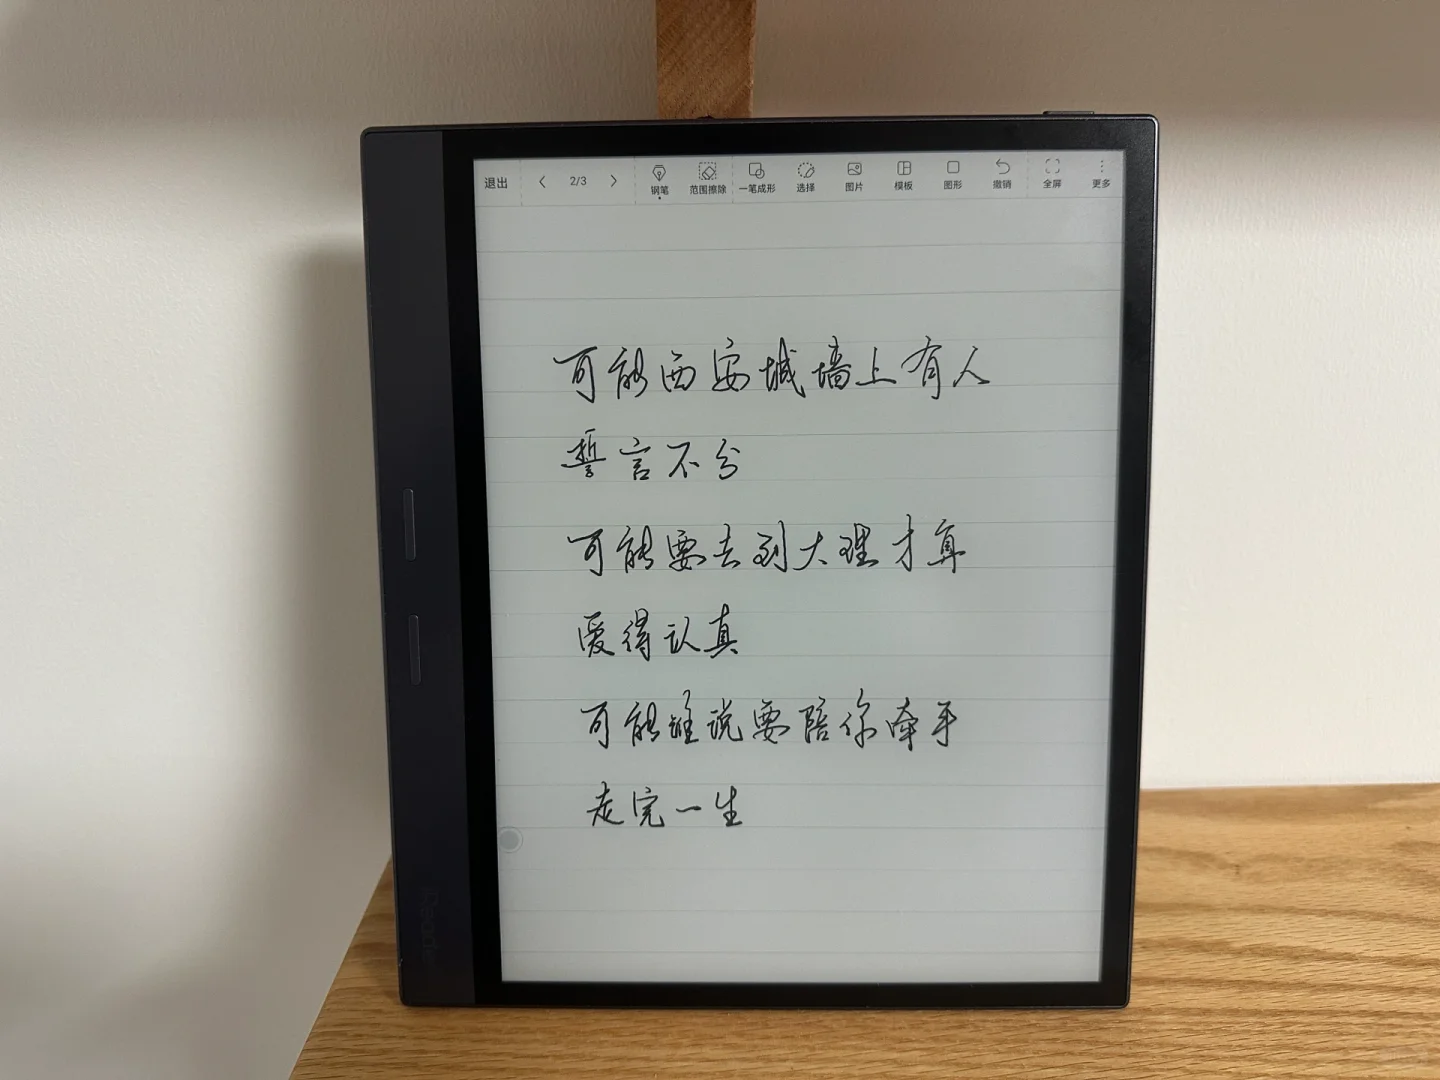 退出 2/3 钢笔 范围擦除 一笔成形 选择 图片 模板 图形 撤销 全屏 更多
可能西安城墙上有人
誓言不分
可能要去到大理才算
爱得认真
可能谁说要陪你牵手
走完一生
iReader